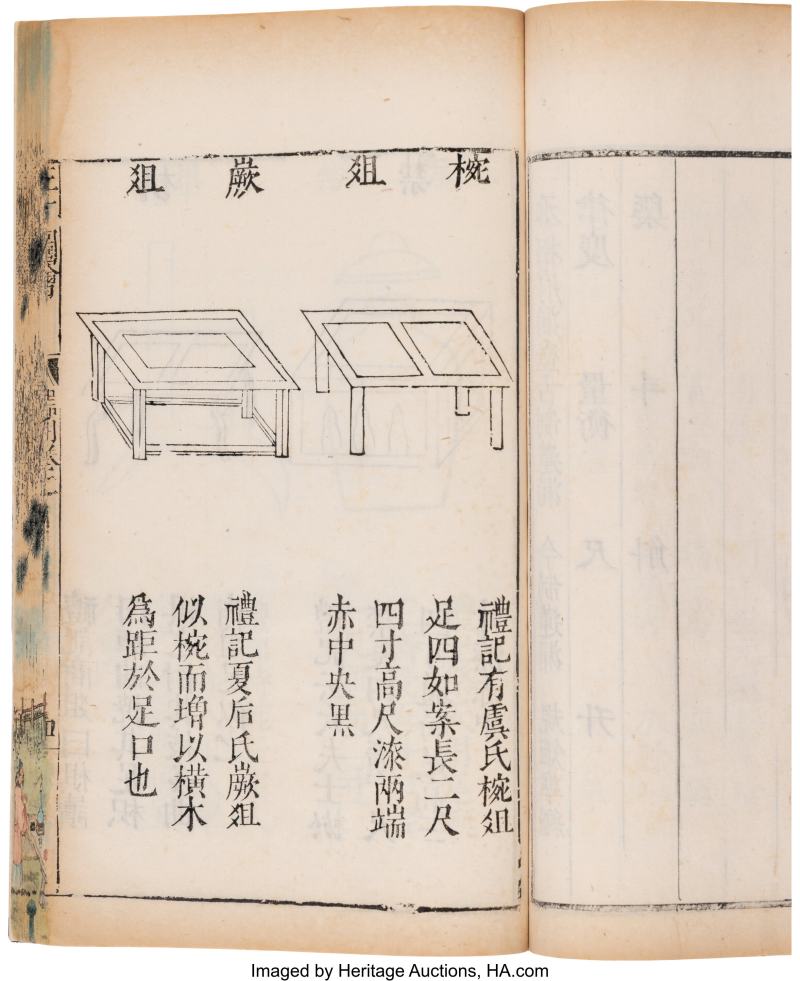 椀爼
嶡爼
禮記有虞氏椀爼
足四如案長二尺
四寸高尺漆兩端
赤中央黑
禮記夏后氏嶡爼
似椀而增以橫木
為距於足口也
圖會
四
Imaged by Heritage Auctions, HA.com